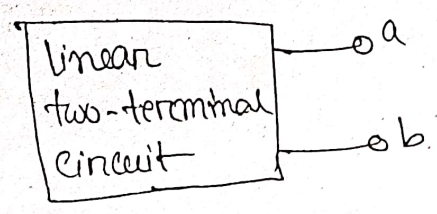 Linear
two-terminal
circuit
a
b